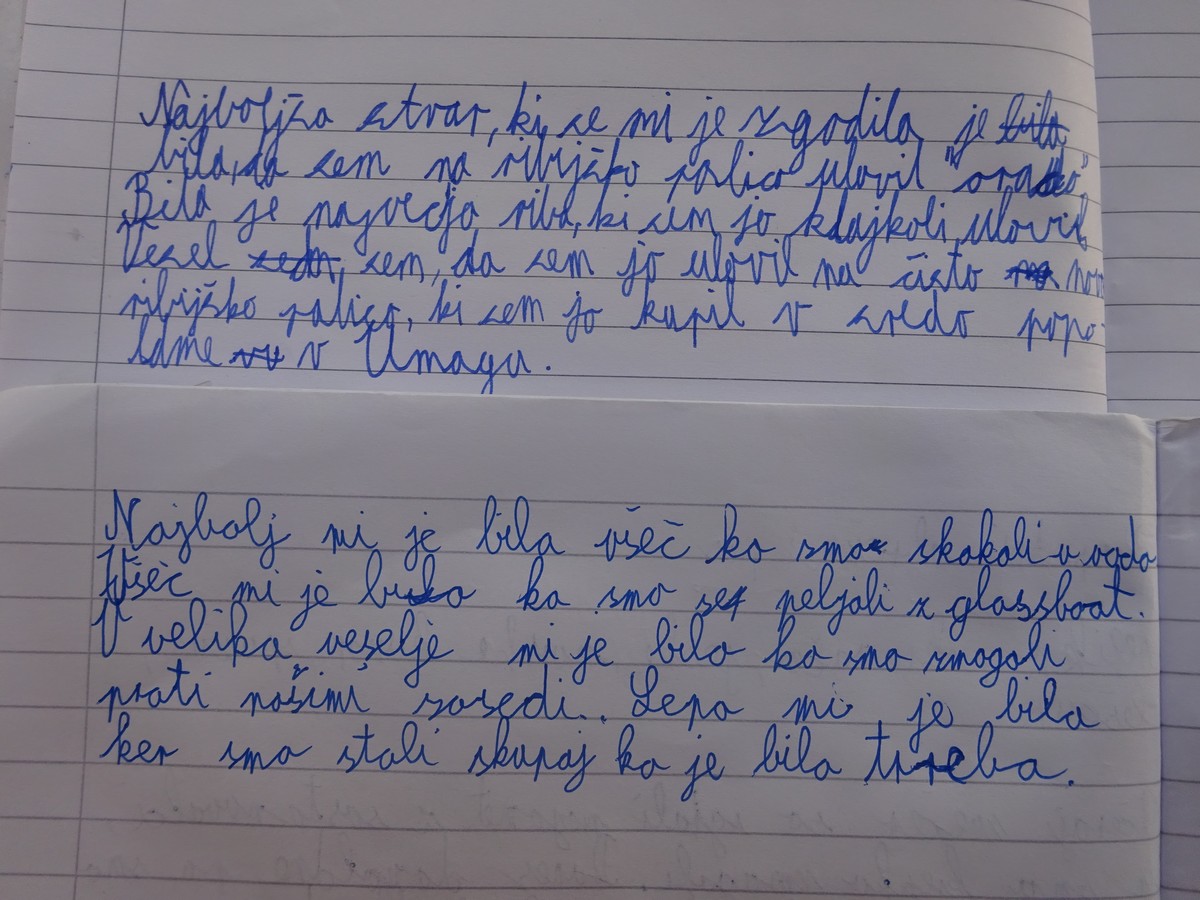 Najboljša stvar, ki se mi je zgodila, je
bila, da sem na ribiško palico ulovil "orado"
Bila je največja riba, ki sem jo kdajkoli ulovil.
Vesel sem, da sem jo ulovil na čisto novo
ribiško palico, ki sem jo kupil v sredo popo-
ldne v Umagu.
Najbolj mi je bilo všeč ko smo skakali v vodo
Všeč mi je bilo ko smo se peljali z glassboat.
V veliko veselje mi je bilo ko smo zmagali
proti našimi sosedi. Lepo mi je bilo
ker smo stali skupaj ko je bilo treba.